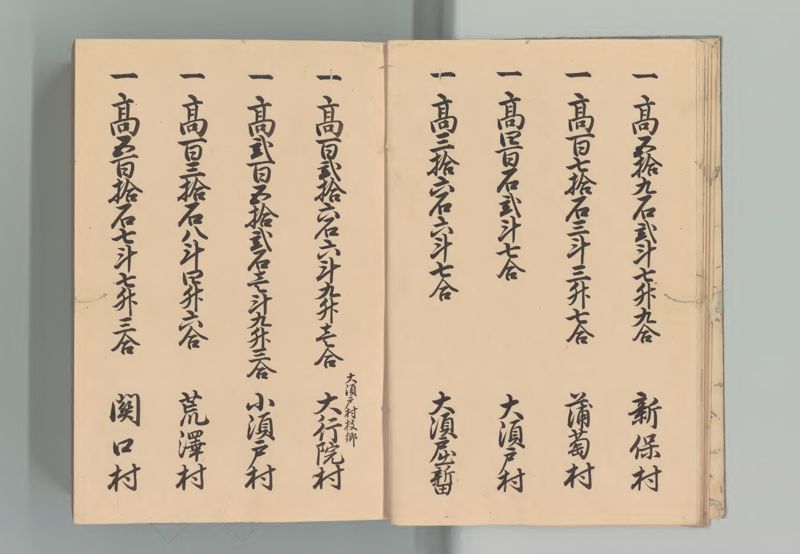 一 高五拾九石弐斗七升九合 新保村
一 高百七拾石三斗三升七合 蒲萄村
一 高四百石弐斗七合 大須戸村
一 高三拾六石六斗七合 大須戸新田
大須戸村枝郷
一 高百弐拾六石六斗九升壱合 大行院村
一 高弐百五拾弐石壱斗九升三合 小須戸村
一 高百三拾石八斗四升六合 荒澤村
一 高五百拾石七斗七升三合 関口村